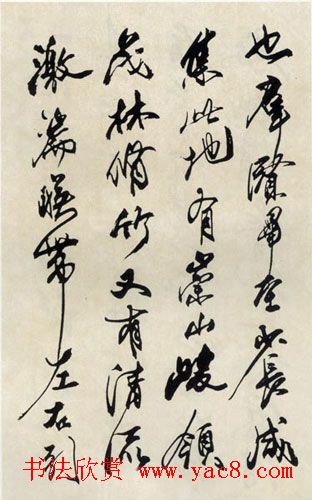 也羣賢畢至少長咸
集此地有崇山峻領
茂林脩竹又有清流
激湍暎帶左右引
书法欣赏 www.yac8.com